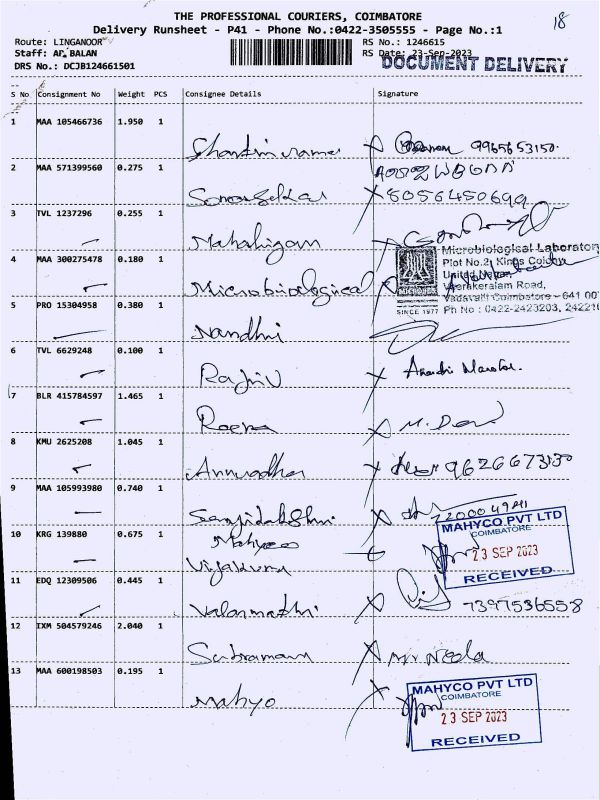 18
THE PROFESSIONAL COURIERS, COIMBATORE
Delivery Runsheet - P41 - Phone No.:0422-3505555 - Page No.:1
Route: LINGANOOR
RS No.: 1246615
Staff: AF. BALAN
RS Date: 23-Sep-2023
DRS No.: DCJB124661501
DOCUMENT DELIVERY
S No Consignment No Weight PCS Consignee Details Signature
1 MAA 105466736 1.950 1
9965653150.
2 MAA 571399560 0.275 1
8056450699
3 TVL 1237296 0.255 1
Mahalingam
4 MAA 300275478 0.180 1
Microbiological
Microbiological Laboratory
Plot No.2, Kings Colony
United Nagar,
Veerakeralam Road,
Vadavalli Coimbatore - 641 00
SINCE 1977 Ph No : 0422-2423203, 242210
5 PRO 15304958 0.380 1
Nandhni
6 TVL 6629248 0.100 1
Rajiv
7 BLR 415784597 1.465 1
Reena
8 KMU 2625208 1.045 1
Annuradha
9 MAA 105993980 0.740 1
10 KRG 139880 0.675 1
Mahyco
MAHYCO PVT LTD
COIMBATORE
23 SEP 2023
RECEIVED
11 EDQ 12309506 0.445 1
Valarmathi
7397536558
12 IXM 504579246 2.040 1
13 MAA 600198503 0.195 1
Mahyo
MAHYCO PVT LTD
COIMBATORE
23 SEP 2023
RECEIVED